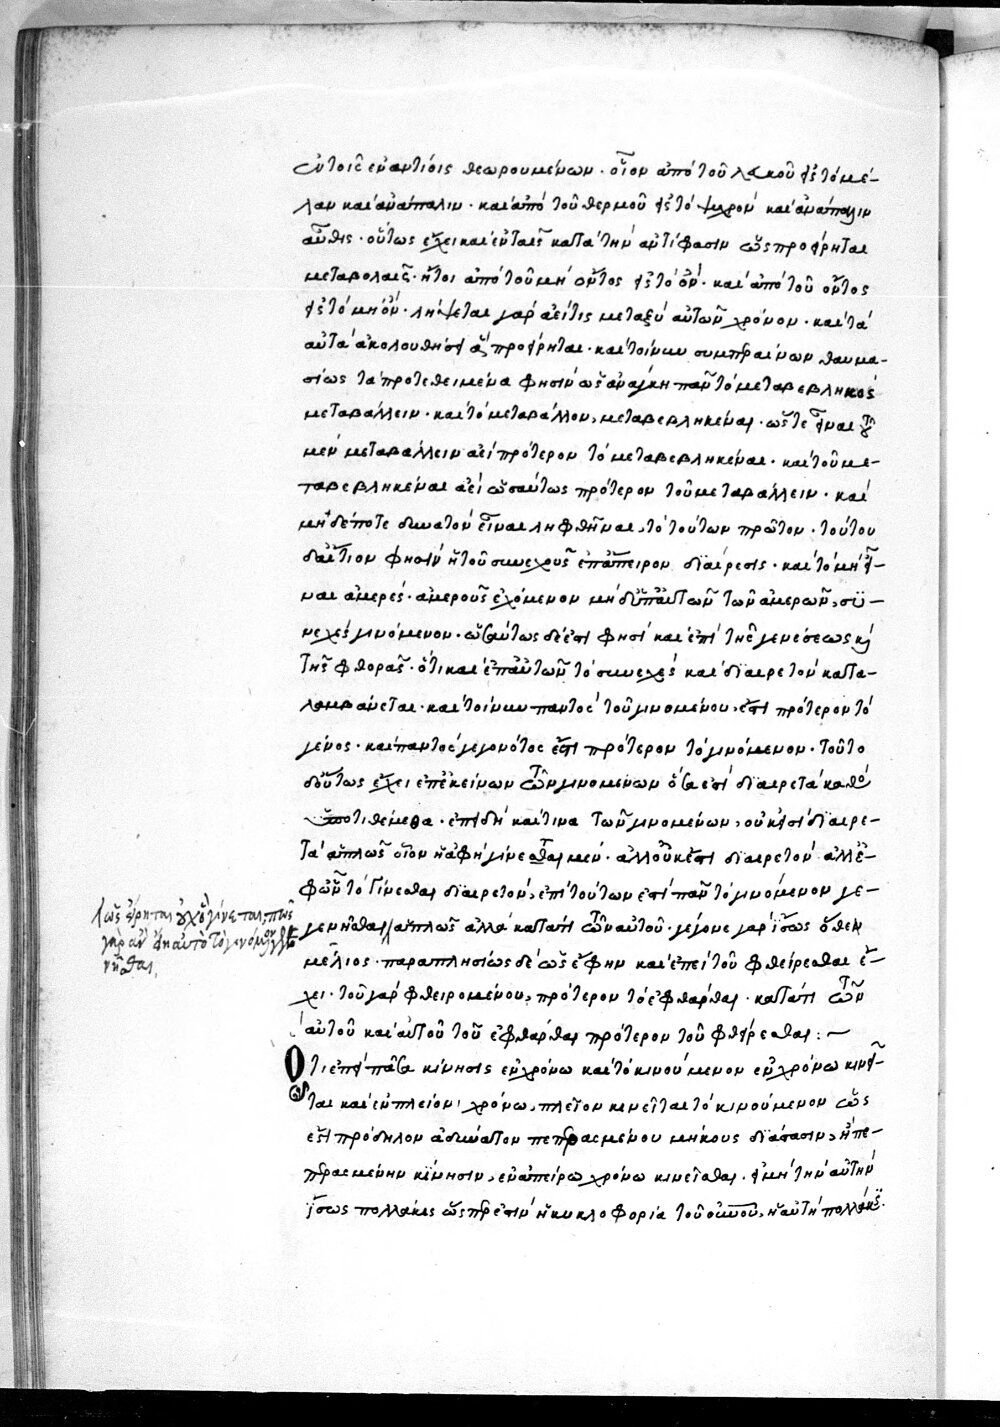 ἐν τοῖς ἐναντίοις θεωρουμένων · οἷον ἀπὸ τοῦ λευκοῦ εἰς τὸ μέ-
λαν καὶ ἀνάπαλιν · καὶ ἀπὸ τοῦ θερμοῦ εἰς τὸ ψυχρὸν καὶ ἀνάπαλιν
αὖθις · οὕτως ἔχει καὶ ἐν ταῖς κατὰ τὴν ἀντίφασιν ὡς προείρηται
μεταβολαῖς · ἤτοι ἀπὸ τοῦ μὴ ὄντος εἰς τὸ ὄν · καὶ ἀπὸ τοῦ ὄντος
εἰς τὸ μὴ ὄν · λήψεται γὰρ ἀεί τις μεταξὺ αὐτῶν χρόνον · καὶ τὰ
αὐτὰ ἀκολουθήσει ἃ προείρηται · καὶ τοίνυν συμπεραίνων θαυμα-
σίως τὰ προτεθειμένα φησὶν ὡς ἀνάγκη πᾶν τὸ μεταβεβληκὸς
μεταβάλλειν · καὶ τὸ μεταβάλλον, μεταβεβληκέναι · ὥστε εἶναι τοῦ
μὲν μεταβάλλειν ἀεὶ πρότερον τὸ μεταβεβληκέναι · καὶ τοῦ με-
ταβεβληκέναι ἀεὶ ὡσαύτως πρότερον τοῦ μεταβάλλειν · καὶ
μηδέποτε δυνατὸν εἶναι ληφθῆναι, τὸ τούτων πρῶτον · τούτου
δ' αἴτιον φησὶν ἡ τοῦ συνεχοῦς ἐπ' ἄπειρον διαίρεσις · καὶ τὸ μὴ εἶ-
ναι ἀμερές · ἀμεροῦς ἐχόμενον μηδ' ὑπ' αὐτῶν τῶν ἀμερῶν, συ-
νεχὲς γινόμενον · ὡσαύτως δέ ἐστι φησὶ καὶ ἐπὶ τῆς γενέσεως καὶ
τῆς φθορᾶς · ὅτι καὶ ἐπ' αὐτῶν τὸ συνεχὲς καὶ διαιρετὸν κατα-
λαμβάνεται · καὶ τοίνυν παντὸς τοῦ γινομένου, ἐστὶ πρότερον τὸ
γένος · καὶ παντὸς γεγονότος ἐστὶ πρότερον τὸ γινόμενον · τοῦτο
δ' οὕτως ἔχει ἐπ' ἐκείνων τῶν γινομένων ὅσα ἐστὶ διαιρετὰ καθὸ
ὑποτιθέμεθα · ἐπειδὴ καὶ τινα τῶν γινομένων, οὐκ εἰσὶ διαιρε-
τὰ ἁπλῶς οἷον ἡ ἁφὴ γίνεσθαι μὲν · ἀλλ' οὐκ ἔστι διαιρετὸν ἀλλ' ἐ-
φ' ὧν τὸ γίνεσθαι διαιρετὸν, ἐπὶ τούτων ἐστὶ πᾶν τὸ γινόμενον γε-
γενῆσθαι ἁπλῶς ἀλλὰ κατά τι τῶν αὐτοῦ · γέγονε γὰρ ἴσως ὁ θε
μέλιος · παραπλησίως δὲ ὡς ἔφην καὶ ἐπεὶ τοῦ φθείρεσθαι ἔ-
χει · τοῦ γὰρ φθειρομένου, πρότερον τὸ ἐφθάρθαι · κατά τι τῶν
αὐτοῦ καὶ αὐτοῦ τοῦ ἐφθάρθαι πρότερον τοῦ φθείρεσθαι : ~
Ὅτι ἐπεὶ πᾶσα κίνησις ἐν χρόνω καὶ τὸ κινούμενον ἐν χρόνω κινεῖ-
ται καὶ ἐν πλείονι χρόνω, πλεῖον κινεῖται τὸ κινούμενον ὡς
ἐστὶ πρόδηλον ἀδύνατον πεπερασμένου μήκους διάστασιν, ἢ πε-
περασμένην κίνησιν, ἐν ἀπείρω χρόνω κινεῖσθαι · εἰ μὴ τὴν αὐτὴν
ἴσως πολλάκις ὥσπερ ἐστὶν ἡ κυκλοφορία τοῦ οὐνοῦ, ἡ αὐτὴ πολλάκις ·
ὡς εἴρηται οὐχ ὃ γίνεται, πῶς
γὰρ ἂν εἴη αὐτὸ τὸ γινόμενον γεγε
νῆσθαι